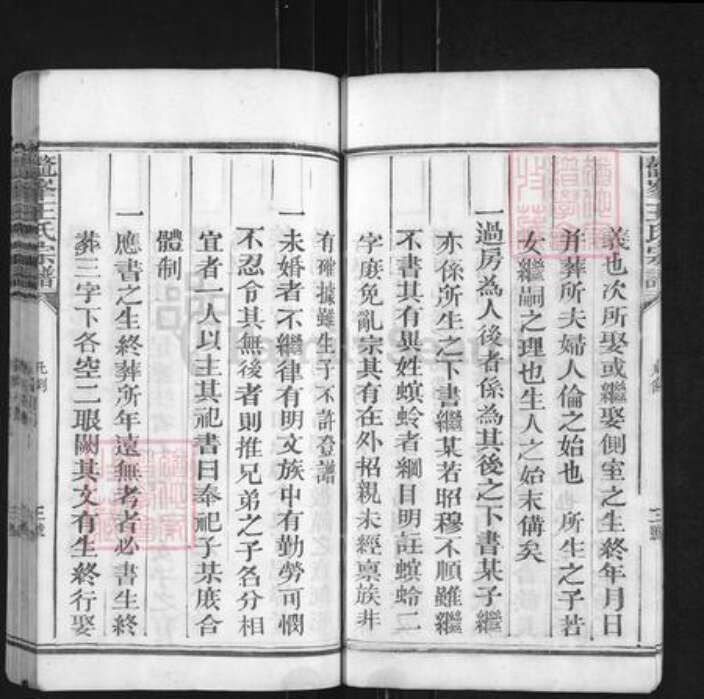 義也次所娶或繼娶側室之生終年月日
并葬所夫婦人倫之始也 所生之子若
女繼嗣之理也生人之始末備矣
一過房為人後者係為其後之下書某子繼
亦係所生之下書繼某若昭穆不順雖繼
不書其有異姓螟蛉者綱目明註螟蛉二
字庶免亂宗其有在外招親未經禀族非
有確據雖生子不許登譜
一未婚者不繼律有明文族中有勤勞可憫
不忍令其無後者則推兄弟之子名分相
宜者一人以主其祀書曰奉祀子某庶合
體制
一應書之生終葬所年遠無考者必書生終
葬三字下各空二眼闕其文有生終行娶
王氏宗譜
凡例
二
王氏宗譜
凡例
三